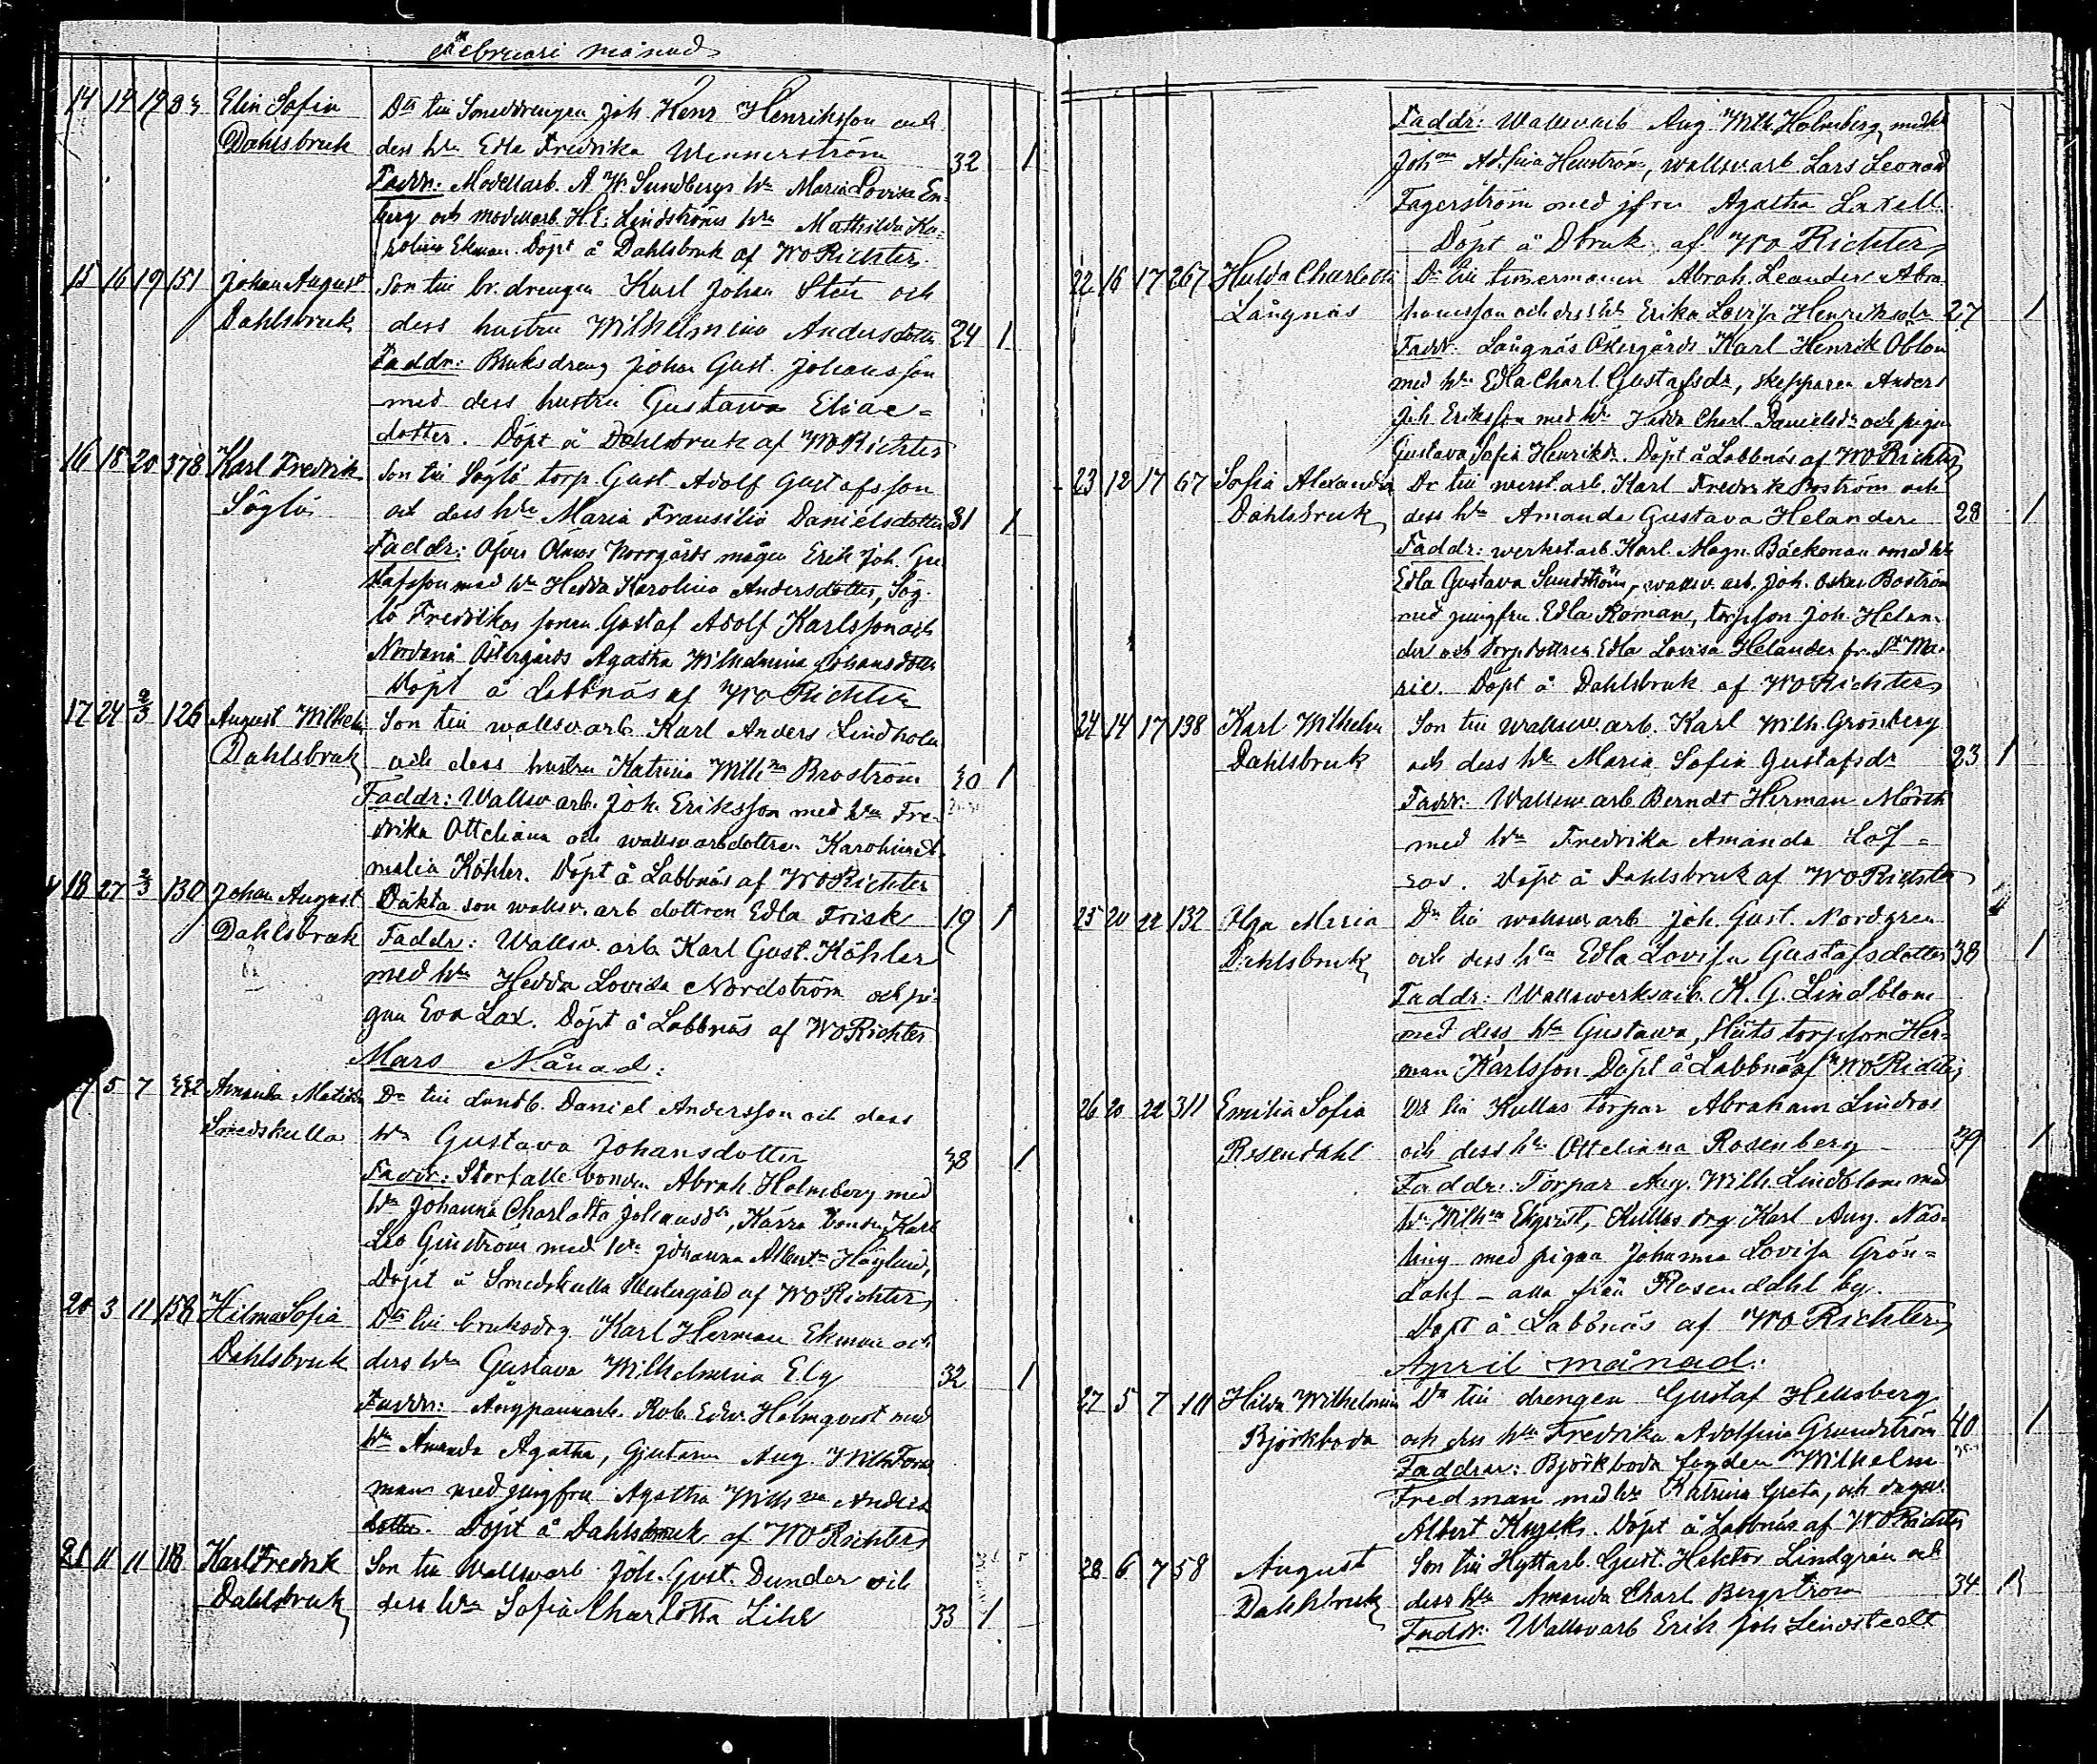 Februari månad
14 14 19 83 Elin Sofia Dtr till Smeddrengen Joh. Henr Henriksson och
Dahlsbruk dess hu Edla Fredrika Wennerström 32 1
Faddr: Modellarb. A W. Sundbergs hu Maria Lovisa En-
berg och modellarb. H.E. Lindströms hu Mathilda Ka-
rolina Ekman. Döpt å Dahlsbruk af WoRichter.
15 16 19 151 Johan August Son till br. drengen Karl Johan Sten och
Dahlsbruk dess hustru Wilhelmina Andersdotter 24 1
Faddr: Bruksdreng Johan Gust. Johansson
med dess hustru Gustava Eliae-
dotter. Döpt å Dahlsbruk af WoRichter
16 18 20 378 Karl Fredrik Son till Söglö torp. Gust Adolf Gustafsson
Söglö och dess hu Maria Fransilia Danielsdotter 31 1
Faddr: Öfver Ölmos Norrgårds mågen Erik Joh. Gu
stafsson med hu Hedda Karolina Andersdotter, Sög-
lö Fredrikas sonen Gustaf Adolf Karlsson och
Nordanå Östergårds Agatha Wilhelmina Johansdotter
Döpt å Labbnäs af Wo Richter
17 24 2/3 126 August Wilhelm Son till wallsv.arb. Karl Anders Lindholm
Dahlsbruk och dess hustru Katrina Wilhna Broström 30 1
Faddr: Wallsv arb. Joh. Eriksson med hu Fre-
drika Otteliana och wallsv arbdottren Karolina A-
malia Köhler. Döpt å Labbnäs af WoRichter
18 27 2/3 130 Johan August Oäkta son wallsv. arb dottren Edla Frisk 19 1
Dahlsbruk Faddr: Wallsv. arb Karl Gust. Köhler
med hu Hedda Lovisa Nordström och pi-
gan Eva Lax. Döpt å Labbnäs af WoRichter
Mars Månad:
5 7 332 Amanda Matilda Dr till landb. Daniel Andersson och dess
Smedskulla hu Gustava Johansdotter 38 1
Faddr: Storfalle bonden Abrah Holmberg med
hu Johanna Charlotta Johansdr, Kärra bonden Karl
Leo Ginström med hu Johanna Albertna Höglund,
Döpt å Smedskulla Westergård af WoRichter
20 3 11 158 Hilma Sofia Dtr till bruksdrg Karl Herman Ekman och
Dahlsbruk dess hu Gustava Wilhelmina Elg 32 1
Faddr: Ångpannarb. Rob. Edv. Holmqvist med
hu Amanda Agatha, Gjutaren Aug. Wilh Fors
man med jungfru Agatha Wilhna Anders
dotter. Döpt å Dahlsbruk af WoRichter
21 11 11 118 Karl Fredrik Son till Wallsvarb. Joh. Gust. Dunder och
Dahlsbruk dess hu Sofia Charlotta Lihr 33 1
Faddr: Wallsvarb Aug. Wilh. Holmberg med hu
Johna Adfina Henström, wallsv.arb. Lars Leonard
Fagerström med jfru Agatha Laxell.
Döpt å Dbruk af Wo Richter
22 16 17 267 Hulda Charlotta Dr till timermannen Abrah. Leander Abra
Långnäs hamsson och dess hu Erika Lovisa Henriksdr 27 1
Faddr. Långnäs Östergårds Karl Henrik Öblom
med hu Edla Charl. Gustafsdr, skepparen Anders
Joh Eriksson med hu Hedda Charl Danielsdr och pigan
Gustava Sofia Henriksdr. Döpt å Labbnäs af WoRichter
23 12 17 67 Sofia Alexandra Dr till werkst.arb. Karl Fredrik Boström och
Dahlsbruk dess hu Amanda Gustava Helander 28 1
Faddr: werkst.arb. Karl. Magn. Bäckman med hu
Edla Gustava Sundström, wallsv. arb. Joh. Oskar Boström
med jungfru Edla Roman, torpson Joh. Helan-
der och torpdottren Edla Lovisa Helander fr. St Ma-
rie. Döpt å Dahlsbruk af WoRichter
24 14 17 138 Karl Wilhelm Son till wallsv. arb. Karl Wilh. Grönberg
Dahlsbruk och dess hu Maria Sofia Gustafsdr 23 1
Faddr: Wallsv arb Berndt Herman Mörck
med hu Fredrika Amanda Löf-
ros. Döpt å Dahlsbruk af WoRichter
25 20 22 132 Olga Maria Dr till wallsv arb Joh. Gust. Nordgren
Dahlsbruk och dess hu Edla Lovisa Gustafsdotter 38 1
Faddr: Wallswerksarb. K. G. Lindblom
med dess hu Gustava, torpson Her-
man Karlsson Döpt å Labbnäs af WoRichter
26 20 22 311 Emilia Sofia Dr till Kullas torpar Abraham Lindros
Rosendahl och dess hu Otteliana Rosenberg 39 1
Faddr: Torpar Aug. Wilh. Lindblom med
hu Wilhna Ekqvist, Kullas drg. Karl Aug. Näs-
ling med pigan Johanna Lovisa Grön-
dahl - alla från Rosendahl by.
Döpt å Labbnäs af Wo Richter
April månad:
27 5 7 10 Hilda Wilhelmina Dr till drengen Gustaf Hellsberg
Björkboda och dess hu Fredrika Adolfina Grundström 40 1
Faddrar: Björkboda fogden Wilhelm
Fredman med hu Katrina Greta, och
Albert Kuseks. Döpt å Labbnäs af WoRichter
28 6 7 58 August Son till Hyttarb. Gust. Hektor Lindgrén och
Dahlsbruk dess hu Amanda Charl Bergström 34 1
Faddr: Wallsvarb Erik Joh Lindstedt